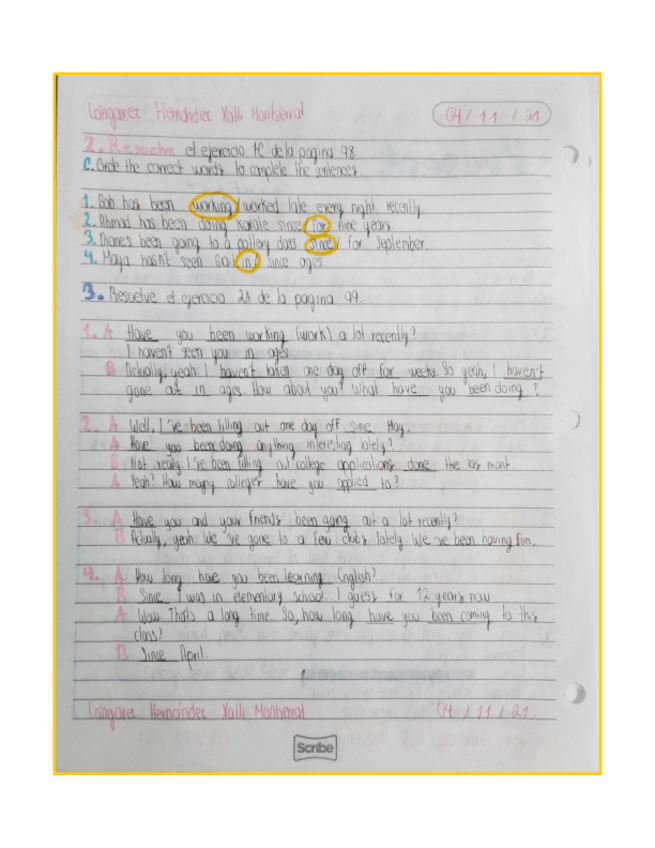 Longaret Hernández Xalli Monserrat 04 / 11 / 21
2. Resuelve el ejercicio 1C de la pagina 98.
C. Circle the correct words to complete the sentences.
1. Bob has been working/worked late every night recently
2. Ahmad has been doing karate since/for nine years.
3. Diane's been going to a pottery class since/ for September.
4. Maya hasn't seen Gail in/ since ages.
3. Resuelve el ejercicio 2A de la pagina 99.
1. A Have you been working (work) a lot recently?
I haven't seen you in ages.
B Actually, yeah I haven't taken one day off for weeks. So yeah, I haven't
gone out in ages. How about you? What have you been doing ?
2. A Well, I 've been filling out one day off since May.
A Have you been doing anything interesting lately?
B Not really. I 've been filling out college applications done the las mont.
A Yeah? How many colleges have you applied to?
3. A Have you and your friends been going out a lot recently?
B Actually, yeah. We 've gone to a few clubs lately. We 've been having fun.
4. A How long have you been learning English?
B Since I was in elementary school. I guess for 12 years now
A Wow That's a long time. So, how long have you been coming to this
class?
B Since April.
Longaret Hernández Xalli Monserrat 04 / 11 / 21.
Scribe